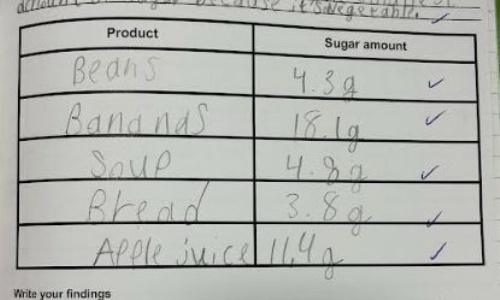 amount of sugar because it's vegetable.
Product Sugar amount
Beans 4.3g
Bananas 18.1g
Soup 4.8g
Bread 3.8g
Apple juice 11.4g
Write your findings